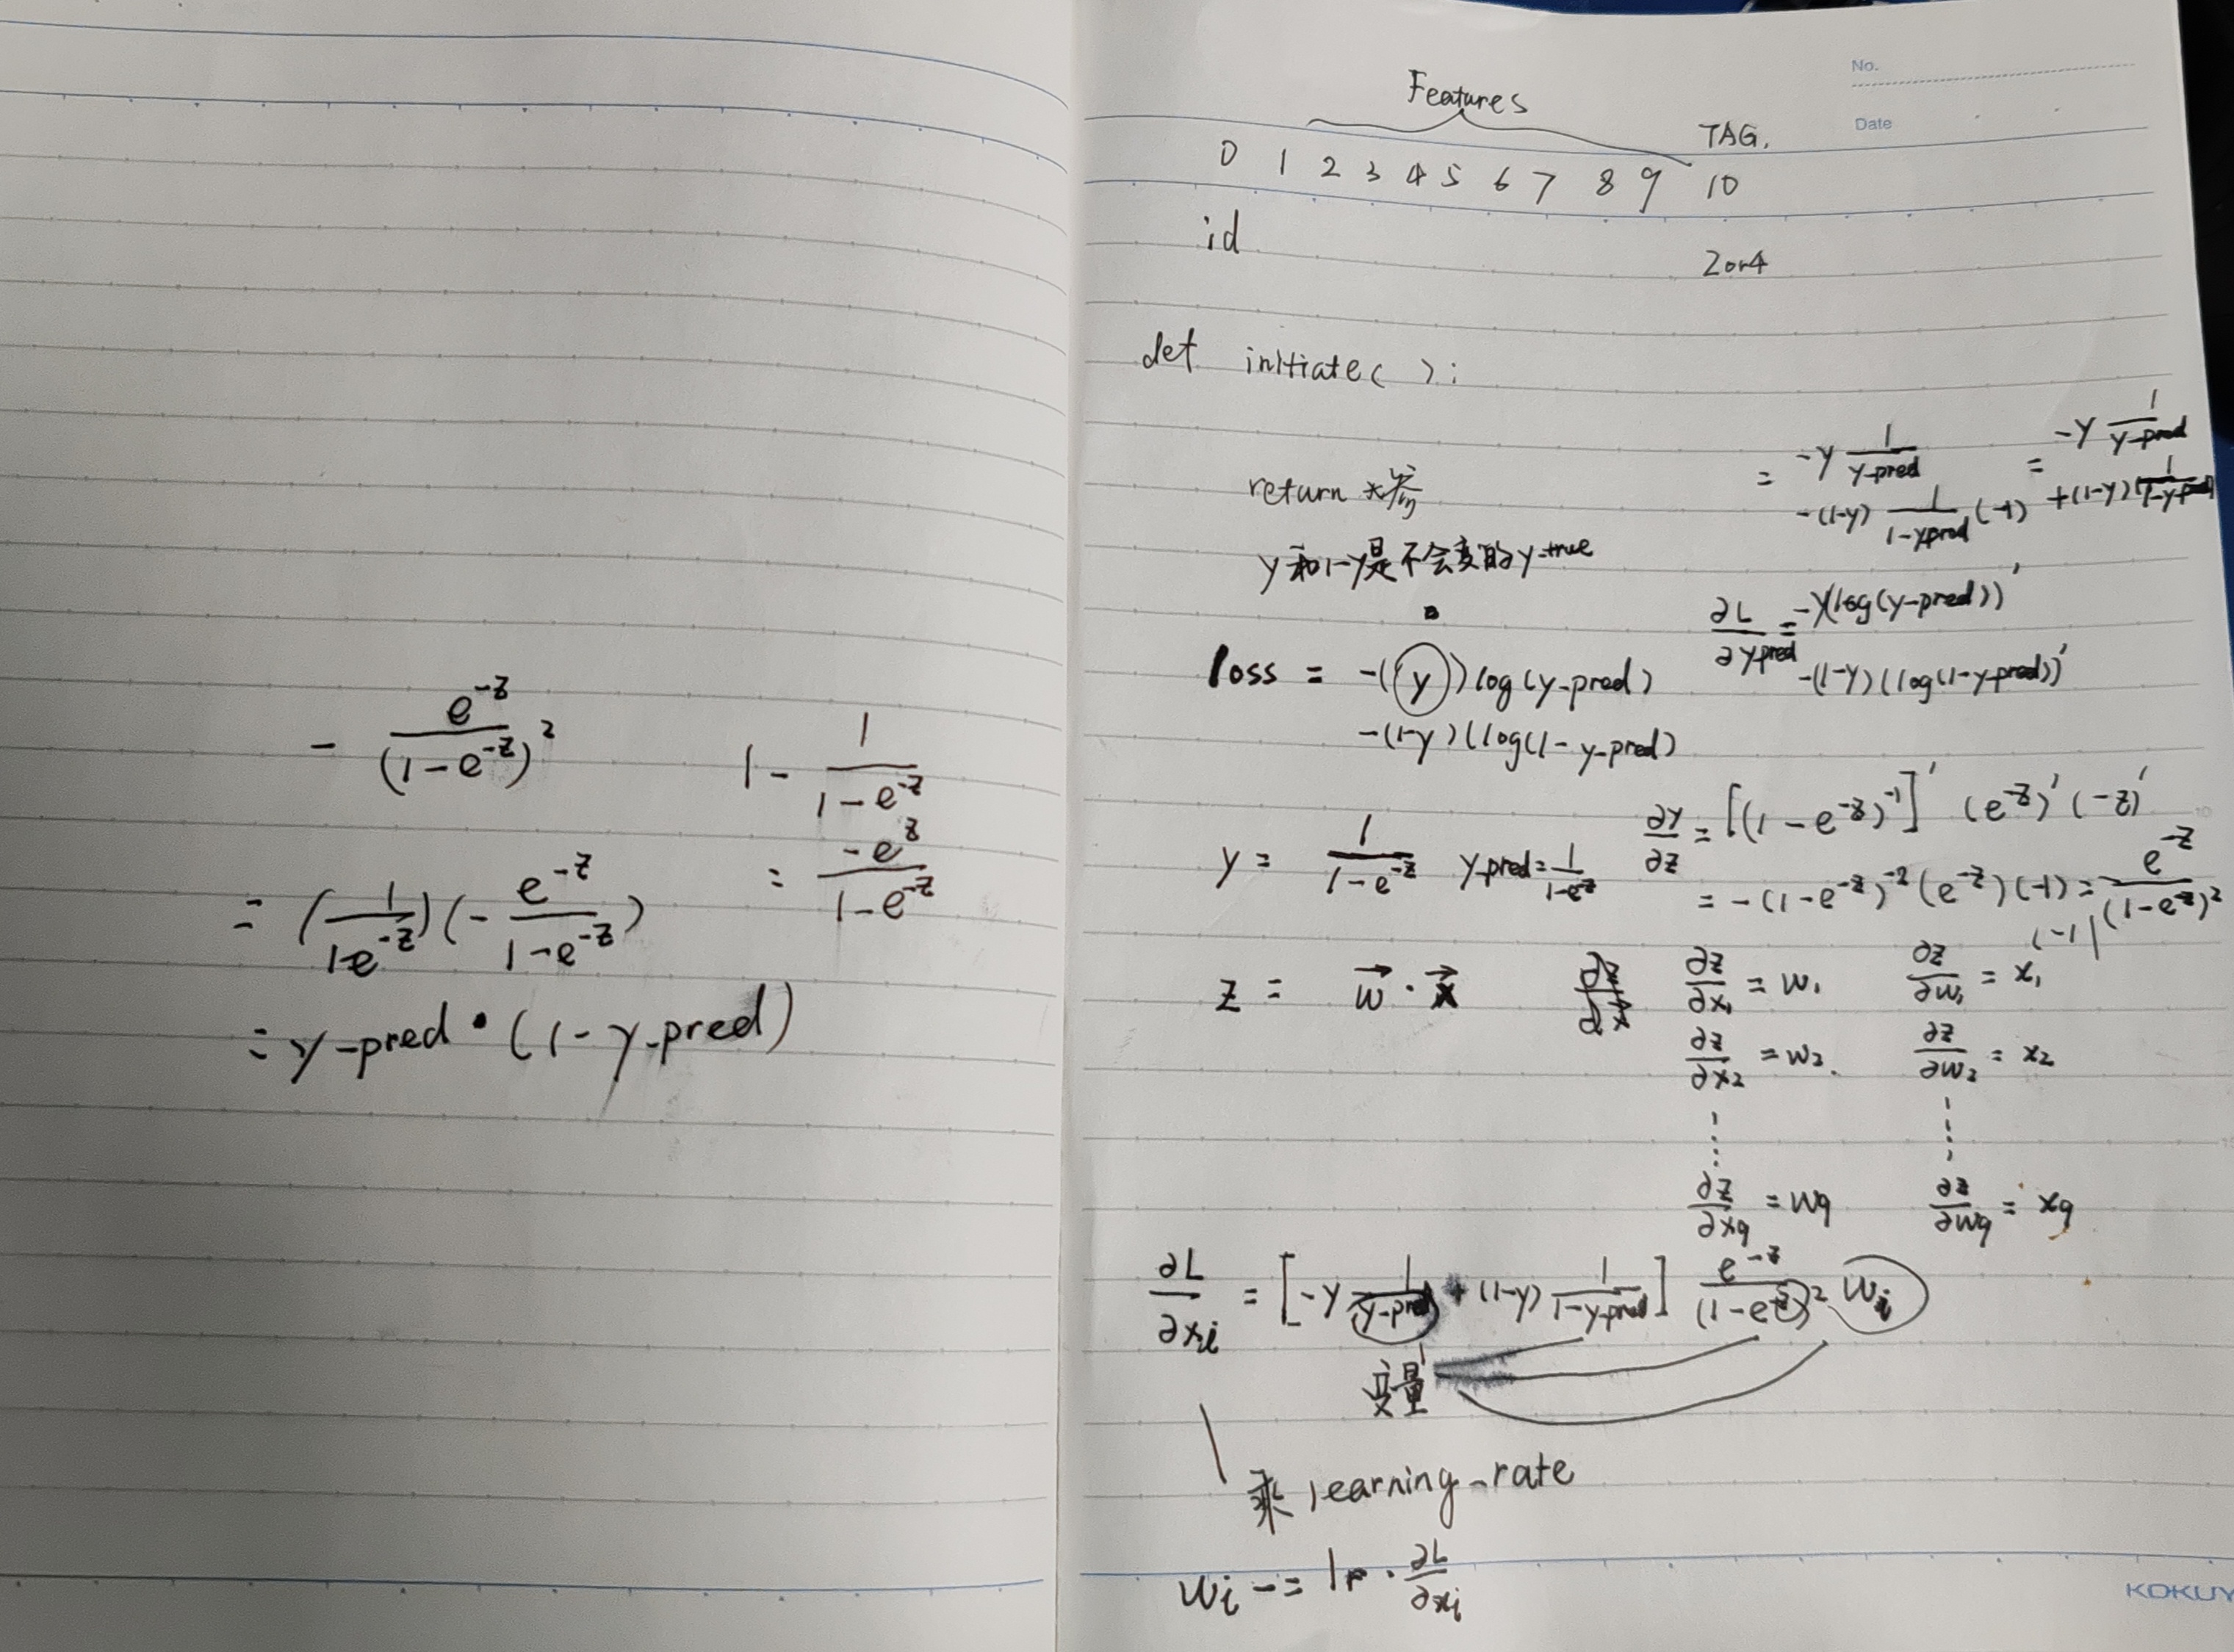 - e^{-z}/(1-e^{-z})^2
1 - 1/(1-e^{-z})
= (1/(1-e^{-z}))(- e^{-z}/(1-e^{-z}))
= -e^z/(1-e^{-z})
= y-pred · (1-y-pred)
No.
Date
Features
TAG.
0 1 2 3 4 5 6 7 8 9 10
id
2or4
def initiate( ):
return
= -y 1/y-pred -(1-y) 1/(1-ypred) (-1)
= -y 1/y-pred +(1-y) (1/(1-y-pred))
y和1-y是不会变的y-true
loss = -((y))log(y-pred)
-(1-y)(log(1-y-pred)
∂L/∂ypred = -y(log(y-pred))'
-(1-y)(log(1-y-pred))'
y = 1/(1-e^{-z}) y-pred=1/(1-e^{-z})
∂y/∂z = [(1-e^{-z})^{-1}]' (e^{-z})' (-z)'
= -(1-e^{-z})^{-2}(e^{-z})(-1) = e^{-z}/(1-e^{-z})^2
(-1)
z = w⃗ · x⃗
∂z/∂x₁ = w₁ ∂z/∂w₁ = x₁
∂z/∂x₂ = w₂. ∂z/∂w₂ = x₂
∂z/∂x₉ = w₉ ∂z/∂w₉ = x₉
∂L/∂xi = [-y 1/y-pred + (1-y) 1/(1-y-pred)] e^{-z}/(1-e^{-z})^2 wi
变量
乘 learning-rate
wi -= lr · ∂L/∂xi
KOKUY